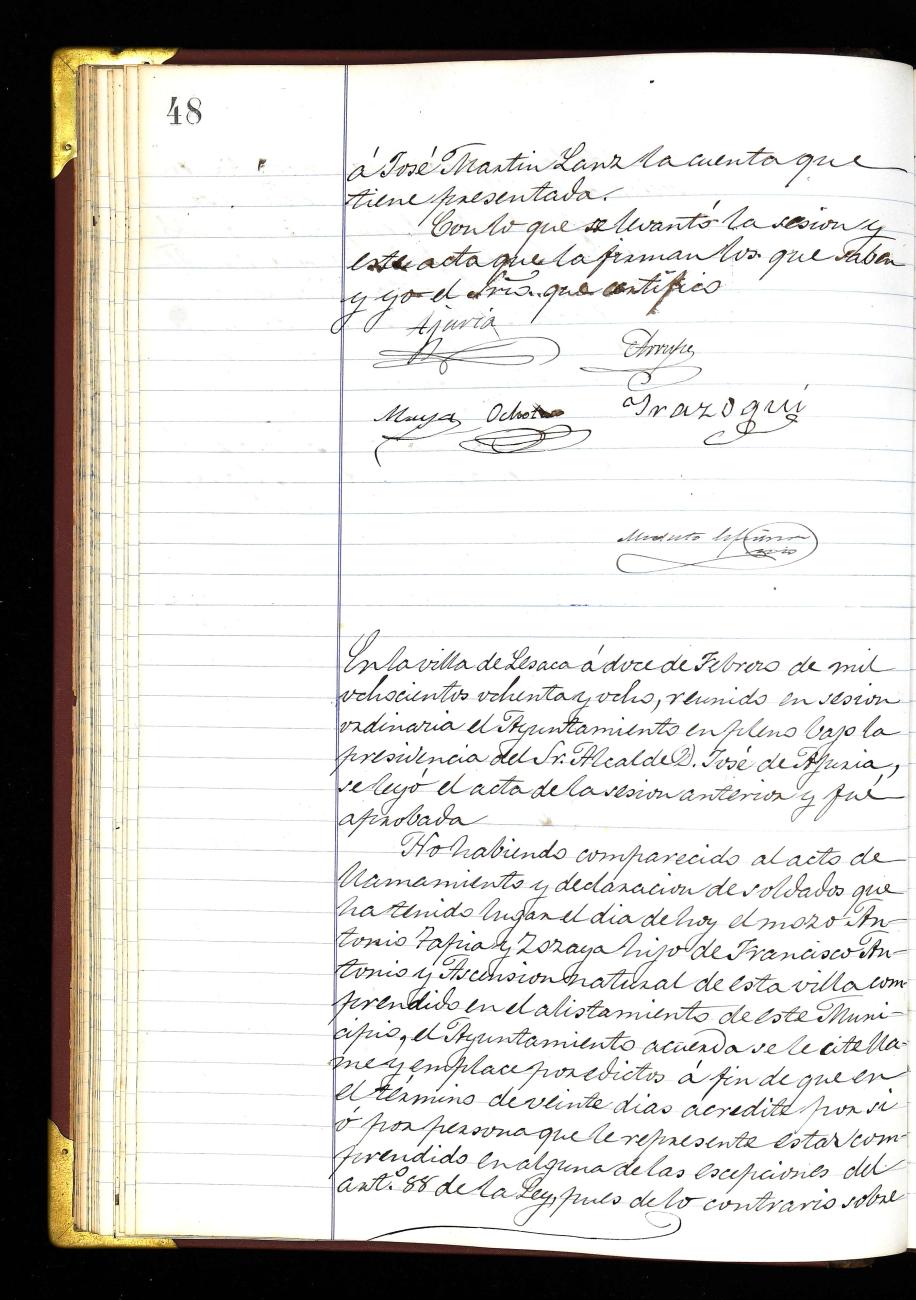 48
á José Martin Lanz la cuenta que
tiene presentada.
Con lo que se levantó la sesion y
este acta que la firman los que saben
y yo el Srio. que certifico
Ajuria
Arrupe
Maya Ochoteco Irazoqui
Modesto
En la villa de Lesaca á doce de Febrero de mil
ochocientos ochenta y ocho, reunido en sesion
ordinaria el Ayuntamiento en pleno bajo la
presidencia del Sr. Alcalde D. José de Ajuria,
se leyó el acta de la sesion anterior y fué
aprobada
No habiendo comparecido al acto de
llamamiento y declaracion de soldados que
ha tenido lugar el dia de hoy el mozo An-
tonio Tapia y Zozaya hijo de Francisco An-
tonio y Ascension natural de esta villa com-
prendido en el alistamiento de este Muni-
cipio, el Ayuntamiento acuerda se le cite lla-
me y emplace por edictos á fin de que en
el término de veinte dias acredite por si
ó por persona que le represente estar com-
prendido en alguna de las escepciones del
art.º 88 de la Ley, pues de lo contrario sobre